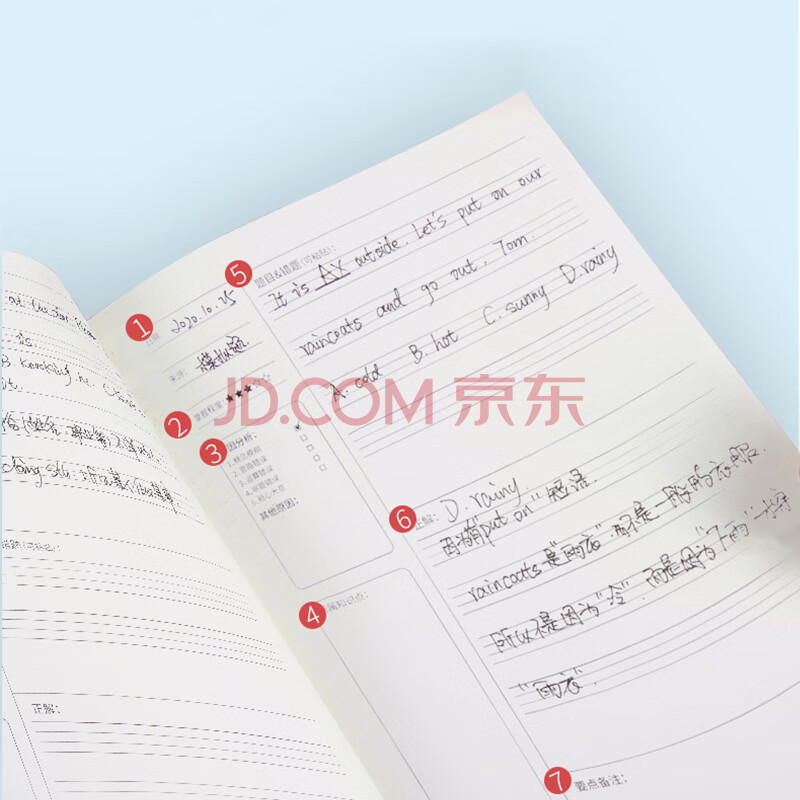 1
日期:
2020.10.25
来源:
模拟题
2
掌握程度:
3
因分析:
1.概念模糊
2.思路错误
3.运算错误
4.审题错误
5.粗心大意
其他原因:
4
属知识点:
5
题目&错题(可粘贴):
It is AX outside. Let's put on our
raincoats and go out, Tom.
A. cold B. hot C. sunny D. rainy
JD.COM 京东
6
正解:
D. rainy
因为有"put on" 短语.
raincoats是"雨衣", 而不是一般的衣服.
所以不是因为"冷", 而是因为"下雨"
"雨衣".
7
要点备注:
题(可粘贴):
正解: